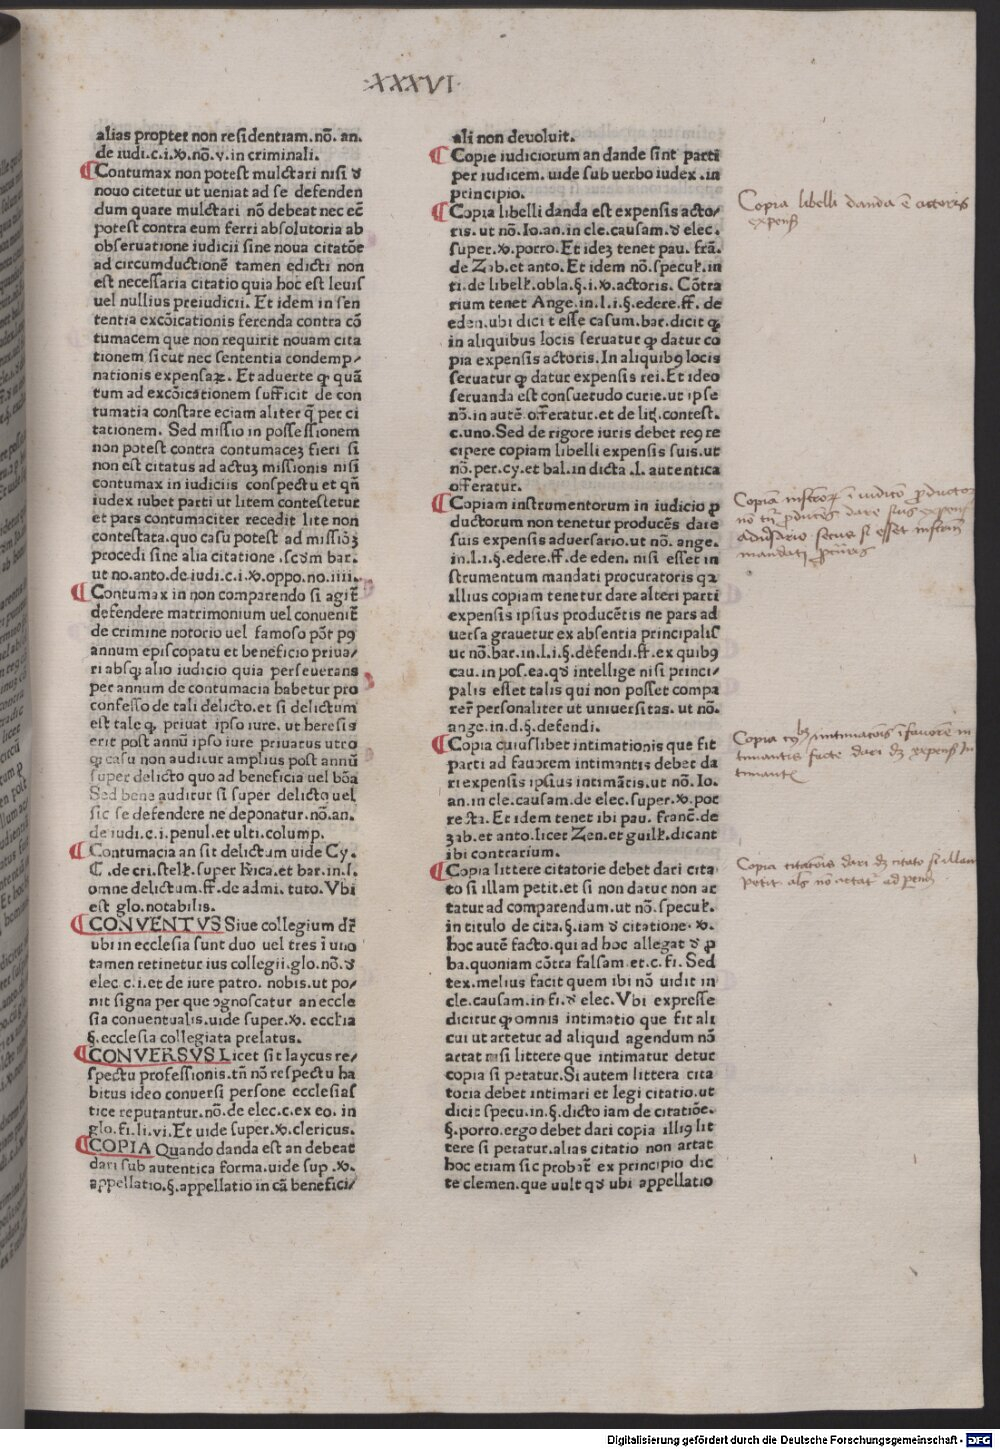 ·XXXVI·
alias proptet non residentiam. nō. an.
de iudi.c.i.xͦ.nō.v.in criminali.
Contumax non potest mulctari nisi ꝺ
nouo citetur ut ueniat ad se defenden
dum quare mulctari nō debeat nec ec̄
potest contra eum ferri absolutoria ab
obseruatione iudicii sine noua citatōe
ad circumductionē tamen edicti non
est necessaria citatio quia hoc est leuis
uel nullius preiudicii. Et idem in sen
tentia excōicationis ferenda contra cō
tumacem que non requirit nouam cita
tionem sicut nec sententia condemp/
nationis expensaꝝ. Et aduerte ꝙ quā
tum ad excōicationem sufficit de con
tumatia constare eciam aliter q̄ per ci
tationem. Sed missio in possessionem
non potest contra contumaceʒ fieri si
non est citatus ad actuʒ missionis nisi
contumax in iudiciis conspectu et qn̄
iudex iubet parti ut litem contestetur
et pars contumaciter recedit lite non
contestata.quo casu potest ad missiōʒ
procedi sine alia citatione .scd̄m bar.
ut no.anto.de iudi.c.i.xͦ.oppo.no.iiii.
Contumax in non comparendo si agit̄
defendere matrimonium uel conuenit̄
de crimine notorio uel famoso pōt pꝯ
annum episcopatu et beneficio priua/
ri absqꝫ alio iudicio quia perseuerans
per annum de contumacia habetur pro
confesso de tali delicto.et si delictum
est tale ꝙ priuat ipso iure. ut heresis
erit post annū ipso iure priuatus utro
ꝙ casu non auditur amplius post annū
super delicto quo ad beneficia uel bōa
Sed bene auditur si super delicto uel
sic se defendere ne deponatur.nō.an.
de iudi.c.i.penul.et ulti.column.
Contumacia an sit delictum uide Cy.
C .de cri.stelꝉ.super Rͬica.et bar.in.l.
omne delictum.ff.de admi. tuto. Vbi
est glo.notabilis.
CONVENTVS Siue collegium dr̄
ubi in ecclesia sunt duo uel tres ī uno
tamen retinetur ius collegii.glo.nō.ꝺ
elec c.i.et de iure patro. nobis.ut po/
nit signa per que ꝯgnoscatur an eccle
sia conuentualis.uide super.xͦ. ecclīa
§.ecclesia collegiata prelatus.
CONVERSVS Licet sit laycus re/
spectu professionis.tn̄ nō respectu ha
bitus ideo conuersi persone ecclesias
tice reputantur.nō.de elec.c.ex eo. in
glo.fi.li.vi.Et uide super.xͦ.clericus.
COPIA Quando danda est an debeat
dari sub autentica forma.uide sup .xͦ.
appellatio.§.appellatio in cā benefici/
ali non deuoluit.
Copie iudiciorum an dande sint parti
per iudicem. uide sub uerbo iudex .in
principio.
Copia libelli danda est expensis acto/
ris. ut nō.Io.an.in cle.causam.ꝺ elec.
super.xͦ.porro. Et ideʒ tenet pau. frā.
de Zab.et anto. Et idem nō.speculꝉ.in
ti.de libelꝉ.obla.§.i.xͦ.actoris. Cōtra
rium tenet Ange.in.l.i.§.edere.ff. de
eden.ubi dicit esse casum.bar.dicit ꝙ
in aliquibus locis seruatur ꝙ datur co
pia expensis actoris.In aliquibꝯ locis
seruatur ꝙ datur expensis rei.Et ideo
seruanda est consuetudo curie.ut ipse
nō.in autē offeratur.et de lit̄.contest.
c.uno.Sed de rigore iuris debet reꝯ re
cipere copiam libelli expensis suis.ut
nō.per.cy.et bal.in dicta .l. autentica
offeratur.
Copiam instrumentorum in iudicio ꝓ
ductorum non tenetur producēs dare
suis expensis aduersario.ut nō. ange.
in.l.i.§.edere.ff.de eden. nisi esset in
strumentum mandati procuratoris qꝛ
illius copiam tenetur dare alteri parti
expensis ipsius producētis ne pars ad
uersa grauetur ex absentia principalis
ut nō.bar.in.l.i.§.defendi.ff.ex quibꝯ
cau.in pos.ea.qꝺ intellige nisi princi/
palis esset talis qui non posset compa
rer̄ personaliter ut uniuersitas. ut nō.
ange.in.d.§.defendi.
Copia cuiuslibet intimationis que fit
parti ad fauorem intimantis debet da
ri expensis ipsius intimātis.ut nō. Io.
an.in cle.causam.de elec.super.xͦ.por
recta. Et idem tenet ibi pau. franc̄.de
zab.et anto.licet Zen.et guilꝉ.dicant
ibi contrarium.
Copia littere citatorie debet dari cita
to si illam petit.et si non datur non ar
tatur ad comparendum.ut nō.speculꝉ.
in titulo de cita.§.iam ꝺ citatione. xͦ.
hoc autē facto.qui ad hoc allegat ꝺ ꝓ
ba.quoniam cōtra falsam.et.c.fi. Sed
tex.melius facit quem ibi nō uidit in
cle.causam.in fi.ꝺ elec. Vbi expresse
dicitur ꝙ omnis intimatio que fit ali
cui ut artetur ad aliquid agendum nō
artat nisi littere que intimatur detur
copia si petatur.Si autem littera cita
toria debet intimari et legi citatio.ut
dicit specu.in.§.dicto iam de citatiōe.
§.porro.ergo debet dari copia illiꝯ lit
tere si petatur.alias citatio non artat
hoc etiam sic probat̄ ex principio dic
te clemen.que uult qꝺ ubi appellatio
Copia libelli danda ē actoris
expens̄
Copiā ī iudicio
mandati
Copia
Copia dari citato si illam
petit als nō artatr̄
Digitalisierung gefördert durch die Deutsche Forschungsgemeinschaft - DFG